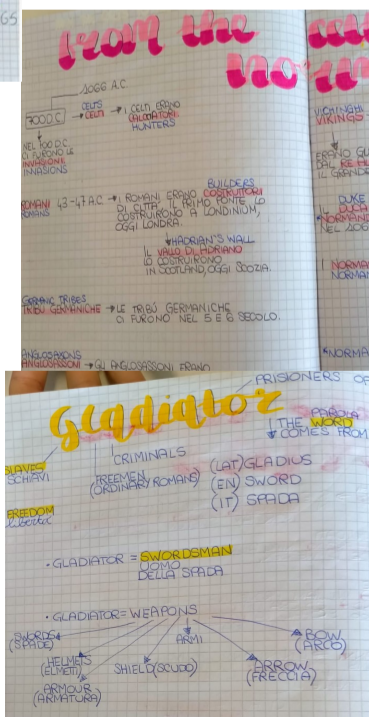 65
from the
1066 A.C.
700 D.C.
CELTS
CELTI
I CELTI ERANO
CACCIATORI
HUNTERS
NEL 700 D.C.
CI FURONO LE
INVASIONI
INVASIONS
BUILDERS
ROMANI 43-47 A.C. I ROMANI ERANO COSTRUITORI
ROMANS
DI CITTÀ, IL PRIMO PONTE LO
COSTRUIRONO A LONDINIUM,
OGGI LONDRA.
HADRIAN'S WALL
IL VALLO DI ADRIANO
LO COSTRUIRONO
IN SCOTLAND, OGGI SCOZIA.
GERMANIC TRIBES
TRIBÙ GERMANICHE LE TRIBÙ GERMANICHE
CI FURONO NEL 5 E 6 SECOLO.
ANGLOSAXONS
ANGLOSASSONI GLI ANGLOSASSONI ERANO
VICHINGHI
VIKINGS
ERANO GU
DAL RE
IL GRANDE
DUKE
IL DUCA
NORMAND
NEL 1066
I NORMA
NORMAN
NORMA
PRISIONERS OF
Gladiator
PAROLA
THE WORD
COMES FROM
SLAVES
SCHIAVI
CRIMINALS
FREEMEN
(ORDINARY ROMANS)
(LAT) GLADIUS
(EN) SWORD
(IT) SPADA
FREEDOM
libertà
• GLADIATOR = SWORDSMAN
UOMO
DELLA SPADA
• GLADIATOR = WEAPONS
SWORDS
(SPADE)
HELMETS
(ELMETI)
ARMOUR
(ARMATURA)
SHIELD (SCUDO)
ARMI
ARROW
(FRECCIA)
BOW
(ARCO)